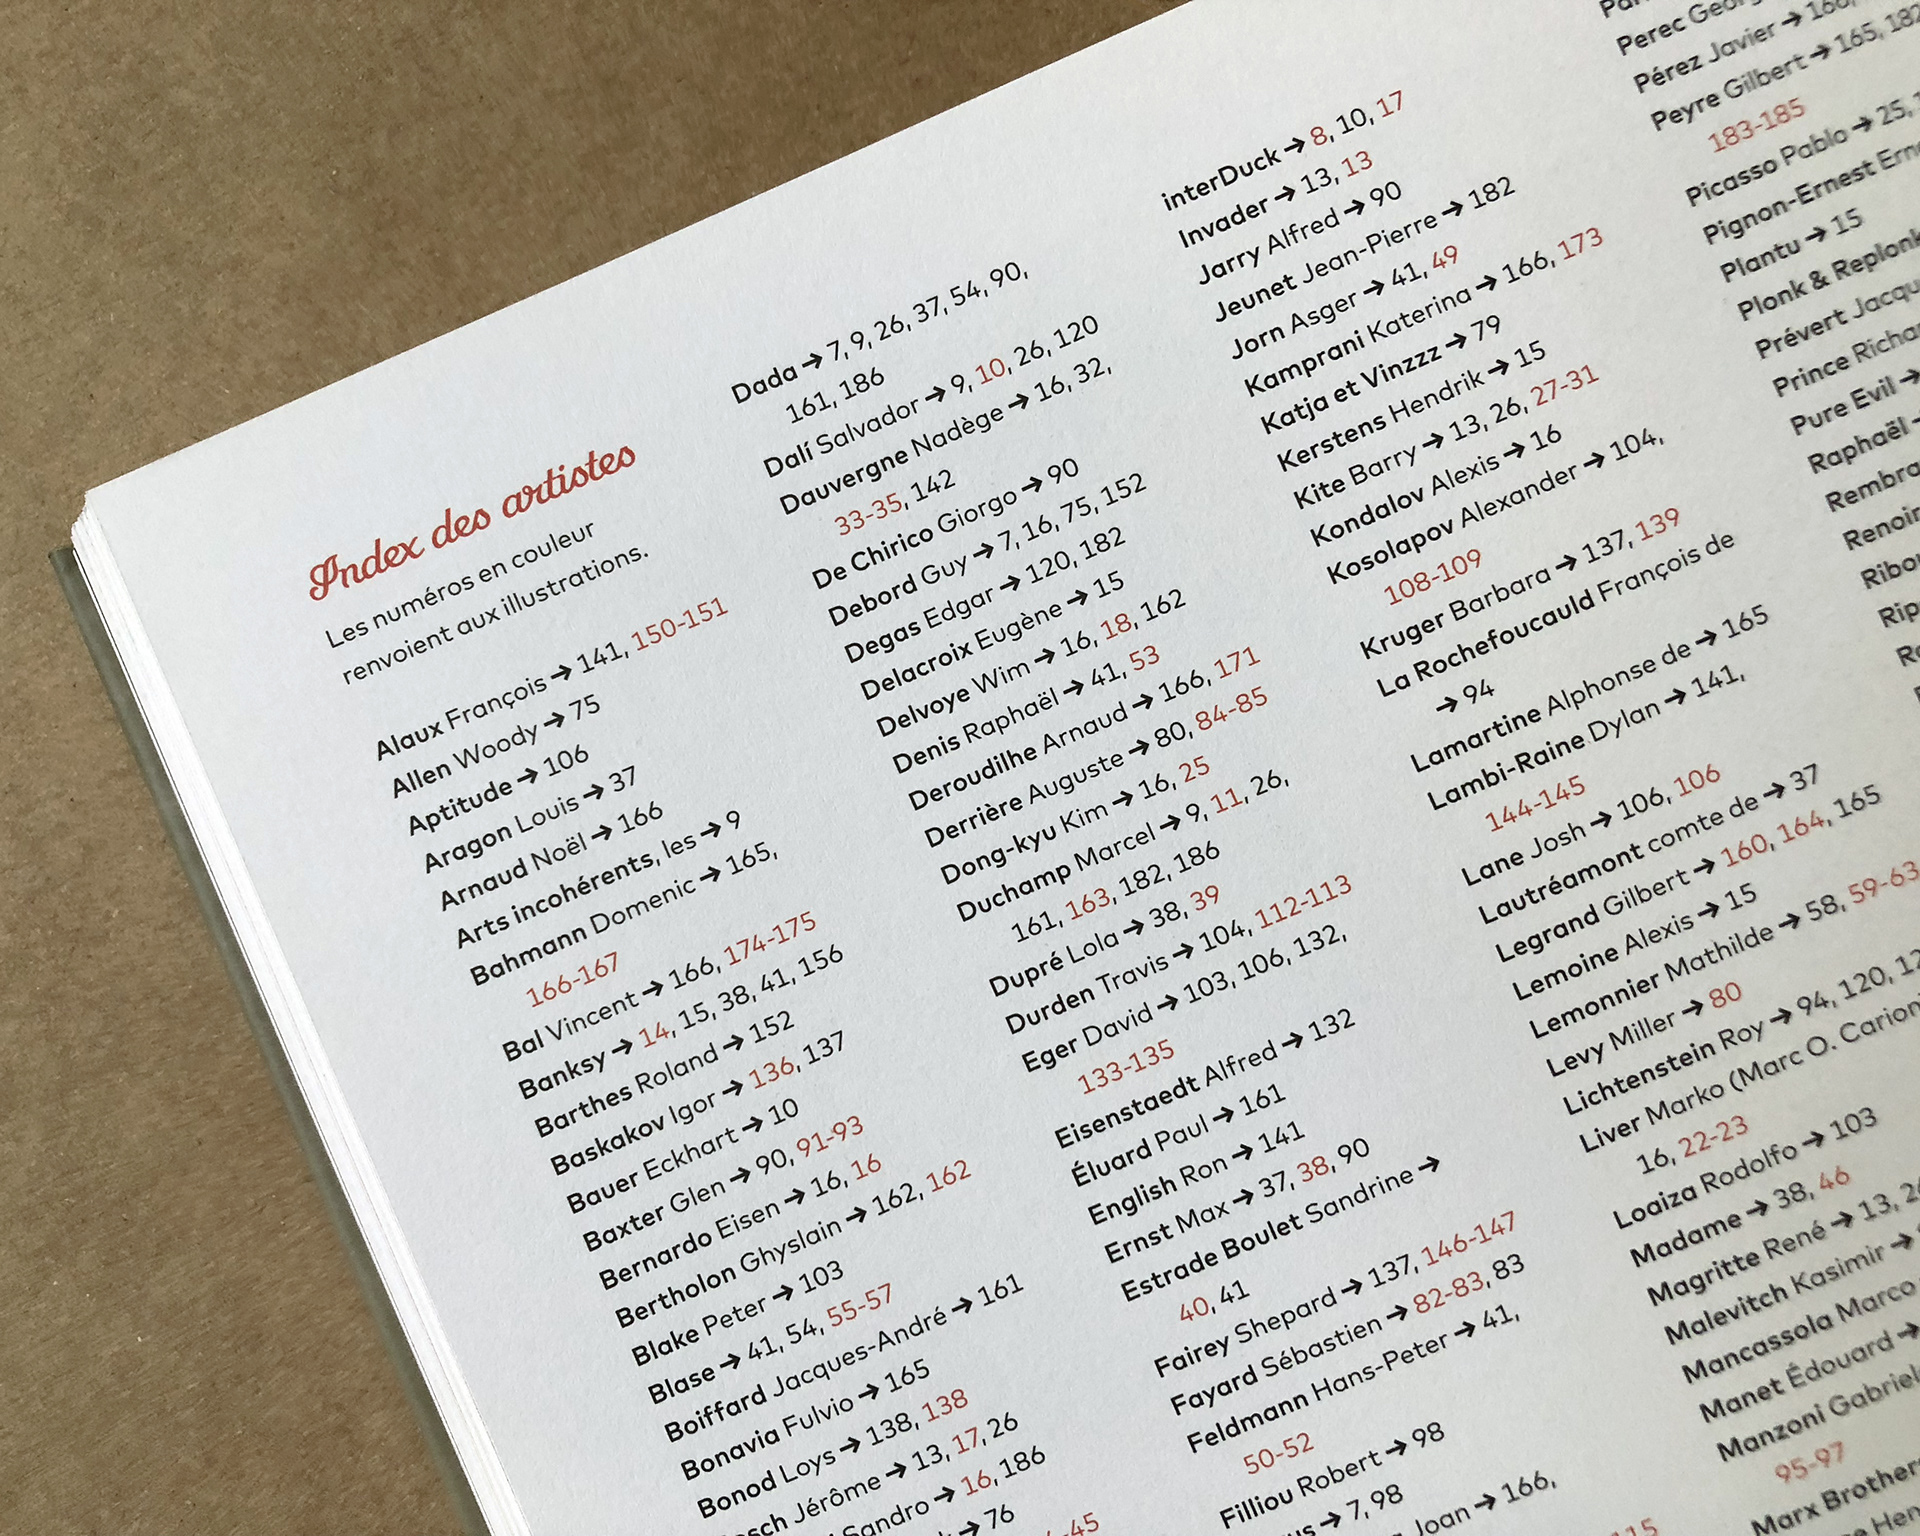 Index des artistes
Les numéros en couleur
renvoient aux illustrations.
Alaux François → 141, 150-151
Allen Woody → 75
Aptitude → 106
Aragon Louis → 37
Arnaud Noël → 166
Arts incohérents, les → 9
Bahmann Domenic → 165,
166-167
Bal Vincent → 166, 174-175
Banksy → 14, 15, 38, 41, 156
Barthes Roland → 152
Baskakov Igor → 136, 137
Bauer Eckhart → 10
Baxter Glen → 90, 91-93
Bernardo Eisen → 16, 16
Bertholon Ghyslain → 162, 162
Blake Peter → 103
Blase → 41, 54, 55-57
Boiffard Jacques-André → 161
Bonavia Fulvio → 165
Bonod Loys → 138, 138
Jérôme → 13, 17, 26
Sandro → 16, 186
→ 76
Dada → 7, 9, 26, 37, 54, 90,
161, 186
Dalí Salvador → 9, 10, 26, 120
Dauvergne Nadège → 16, 32,
33-35, 142
De Chirico Giorgo → 90
Debord Guy → 7, 16, 75, 152
Degas Edgar → 120, 182
Delacroix Eugène → 15
Delvoye Wim → 16, 18, 162
Denis Raphaël → 41, 53
Deroudilhe Arnaud → 166, 171
Derrière Auguste → 80, 84-85
Dong-kyu Kim → 16, 25
Duchamp Marcel → 9, 11, 26,
161, 163, 182, 186
Dupré Lola → 38, 39
Durden Travis → 104, 112-113
Eger David → 103, 106, 132,
133-135
Eisenstaedt Alfred → 132
Éluard Paul → 161
English Ron → 141
Ernst Max → 37, 38, 90
Estrade Boulet Sandrine →
40, 41
Fairey Shepard → 137, 146-147
Fayard Sébastien → 82-83, 83
Feldmann Hans-Peter → 41,
50-52
Filliou Robert → 98
→ 7, 98
Joan → 166,
interDuck → 8, 10, 17
Invader → 13, 13
Jarry Alfred → 90
Jeunet Jean-Pierre → 182
Jorn Asger → 41, 49
Kamprani Katerina → 166, 173
Katja et Vinzzz → 79
Kerstens Hendrik → 15
Kite Barry → 13, 26, 27-31
Kondalov Alexis → 16
Kosolapov Alexander → 104,
108-109
Kruger Barbara → 137, 139
La Rochefoucauld François de
→ 94
Lamartine Alphonse de → 165
Lambi-Raine Dylan → 141,
144-145
Lane Josh → 106, 106
Lautréamont comte de → 37
Legrand Gilbert → 160, 164, 165
Lemoine Alexis → 15
Lemonnier Mathilde → 58, 59-63
Levy Miller → 80
Lichtenstein Roy → 94, 120,
Liver Marko (Marc O. Carion
16, 22-23
Loaiza Rodolfo → 103
Madame → 38, 46
Magritte René → 13,
Malevitch Kasimir →
Mancassola Marco
Manet Édouard →
Manzoni
95-97
Marx Brothers
Perec
Pérez Javier →
Peyre Gilbert → 165,
183-185
Picasso Pablo → 25,
Pignon-Ernest
Plantu → 15
Plonk & Replonk
Prévert
Prince
Pure Evil →
Raphaël